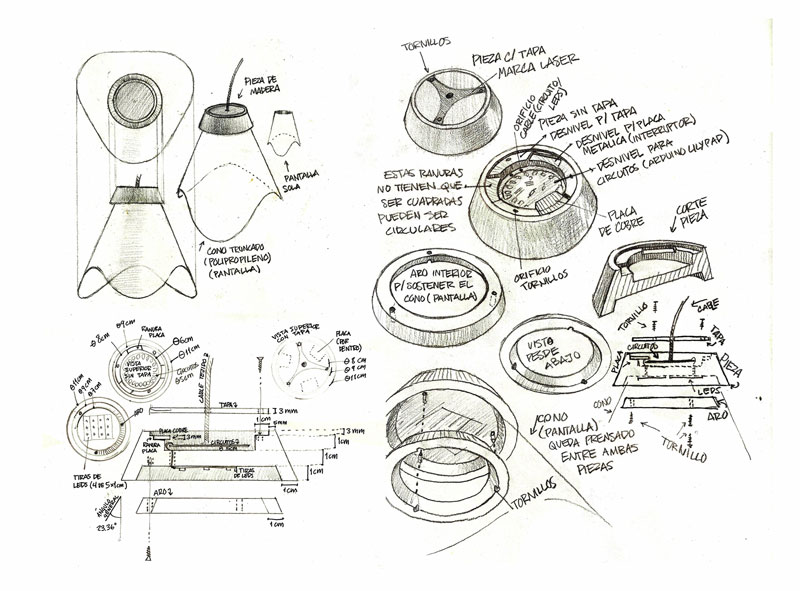 PIEZA DE
MADERA
PANTALLA
SOLA
CONO TRUNCADO
(POLIPROPILENO)
(PANTALLA)
TORNILLOS
PIEZA C/ TAPA
MARCA LASER
ORIFICIO
CABLE (CIRCUITO/
LEDS)
PIEZA SIN TAPA
DESNIVEL P/ TAPA
DESNIVEL P/PLACA
METALICA (INTERRUPTOR)
DESNIVEL PARA
CIRCUITOS (ARDUINO LILYPAD)
ESTAS RANURAS
NO TIENEN QUE
SER CUADRADAS
PUEDEN SER
CIRCULARES
PLACA
DE COBRE
CORTE
PIEZA
ORIFICIO
TORNILLOS
ARO INTERIOR
P/ SOSTENER EL
CONO (PANTALLA)
VISTO
DESDE
ABAJO
TORNILLO
CABLE
TAPA
CIRCUITOS
PLACA
PIEZA
LEDS
CONO
ARO
TORNILLO
CONO
(PANTALLA)
QUEDA PRENSADO
ENTRE AMBAS
PIEZAS
TORNILLOS
RANURA
PLACA
θ 9cm
θ 8cm
θ 6cm
θ 11cm
CIRCUITOS
θ 5cm
VISTA
SUPERIOR
SIN TAPA
VISTA SUPERIOR
CON TAPA
PLACA
(POR
DENTRO)
θ 8 cm
θ 9 cm
θ 11 cm
θ 11cm
θ 9cm
θ 7cm
ARO
TIRAS DE
LEDS (4 DE 5x1cm)
CABLE TEJIDO
TAPA
3 mm
1cm
PLACA COBRE
3mm
3mm
RANURA
PLACA
CIRCUITOS
1cm
1cm
4 TIRAS
DE LEDS
1cm
1cm
ARO
1cm
1cm
ÁNGULO
GENERAL
23,36°